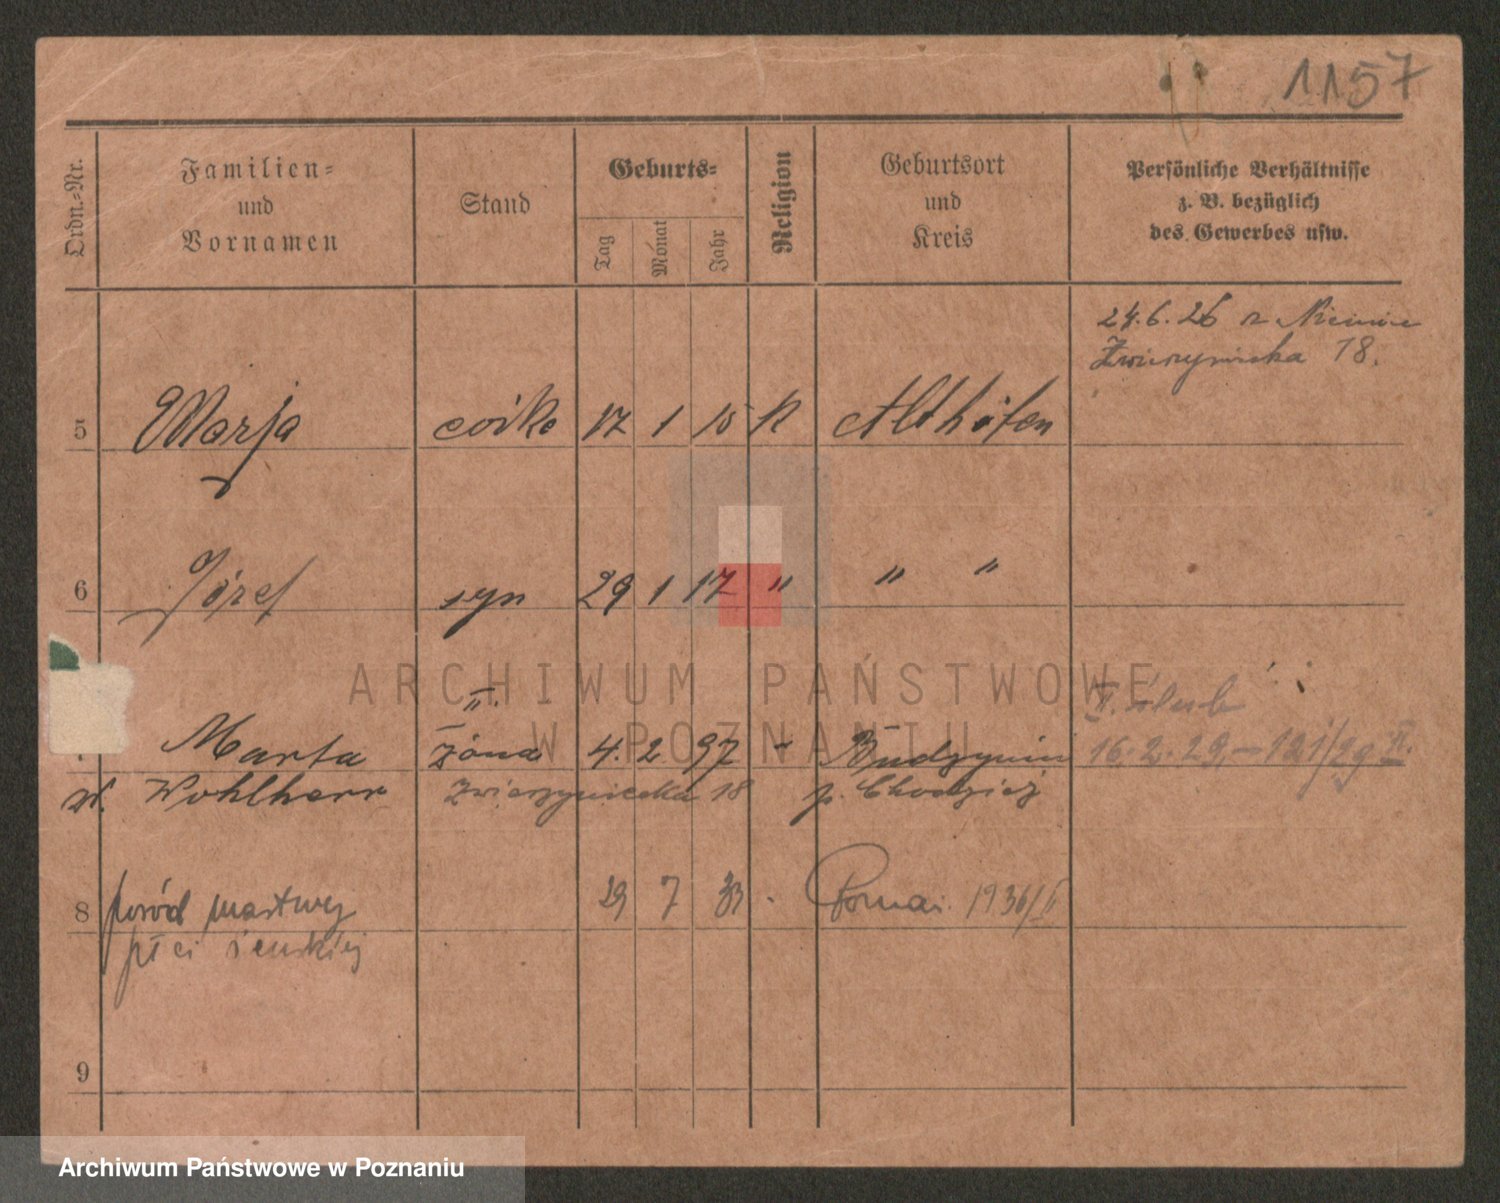 1157
Ordn.-Nr.
Familien-
und
Vornamen
Stand
Geburts-
Tag
Monat
Jahr
Religion
Geburtsort
und
Kreis
Persönliche Verhältnisse
z. B. bezüglich
des Gewerbes usw.
24.6.26 z
Zwierzyniecka 18.
5 Marja córka 17 1 15 K Althöfen
6 Józef syn 29 1 17 " " "
ARCHIWUM PAŃSTWOWE
W POZNANIU
II. II. ślub
Marta żona 4. 2 97 - Budzyniu 16.2.29. – 121/29 II.
z. Wohlherr Zwierzyniecka 18 p. Chodzież
8 poród martwej 29 7 33 - Poznań. 1936/II
płci żeńskiej
9
Archiwum Państwowe w Poznaniu